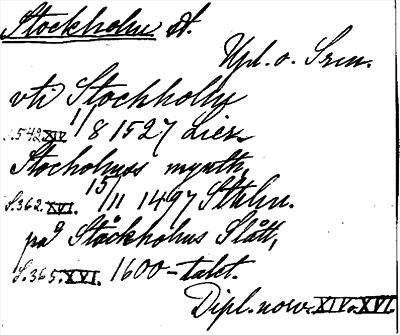 Stockholm st.
Upl. o. Srm.
vti Stockholm
S.542.XIV. 11/8 1527 Lier.
Stocholmss mynth,
S.362.XVI. 15/11 1497 Sthlm.
på Ståkholms Slått,
S.365.XVI. 1600-talet.
Dipl. norv. XIV o. XVI.